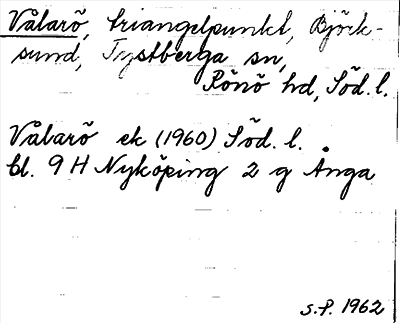 Vålarö, triangelpunkt, Björk-
sund, Tystberga sn,
Rönö hd, Söd. l.
Vålarö ek (1960) Söd. l.
bl. 9 H Nyköping 2 g Ånga
S.P. 1962